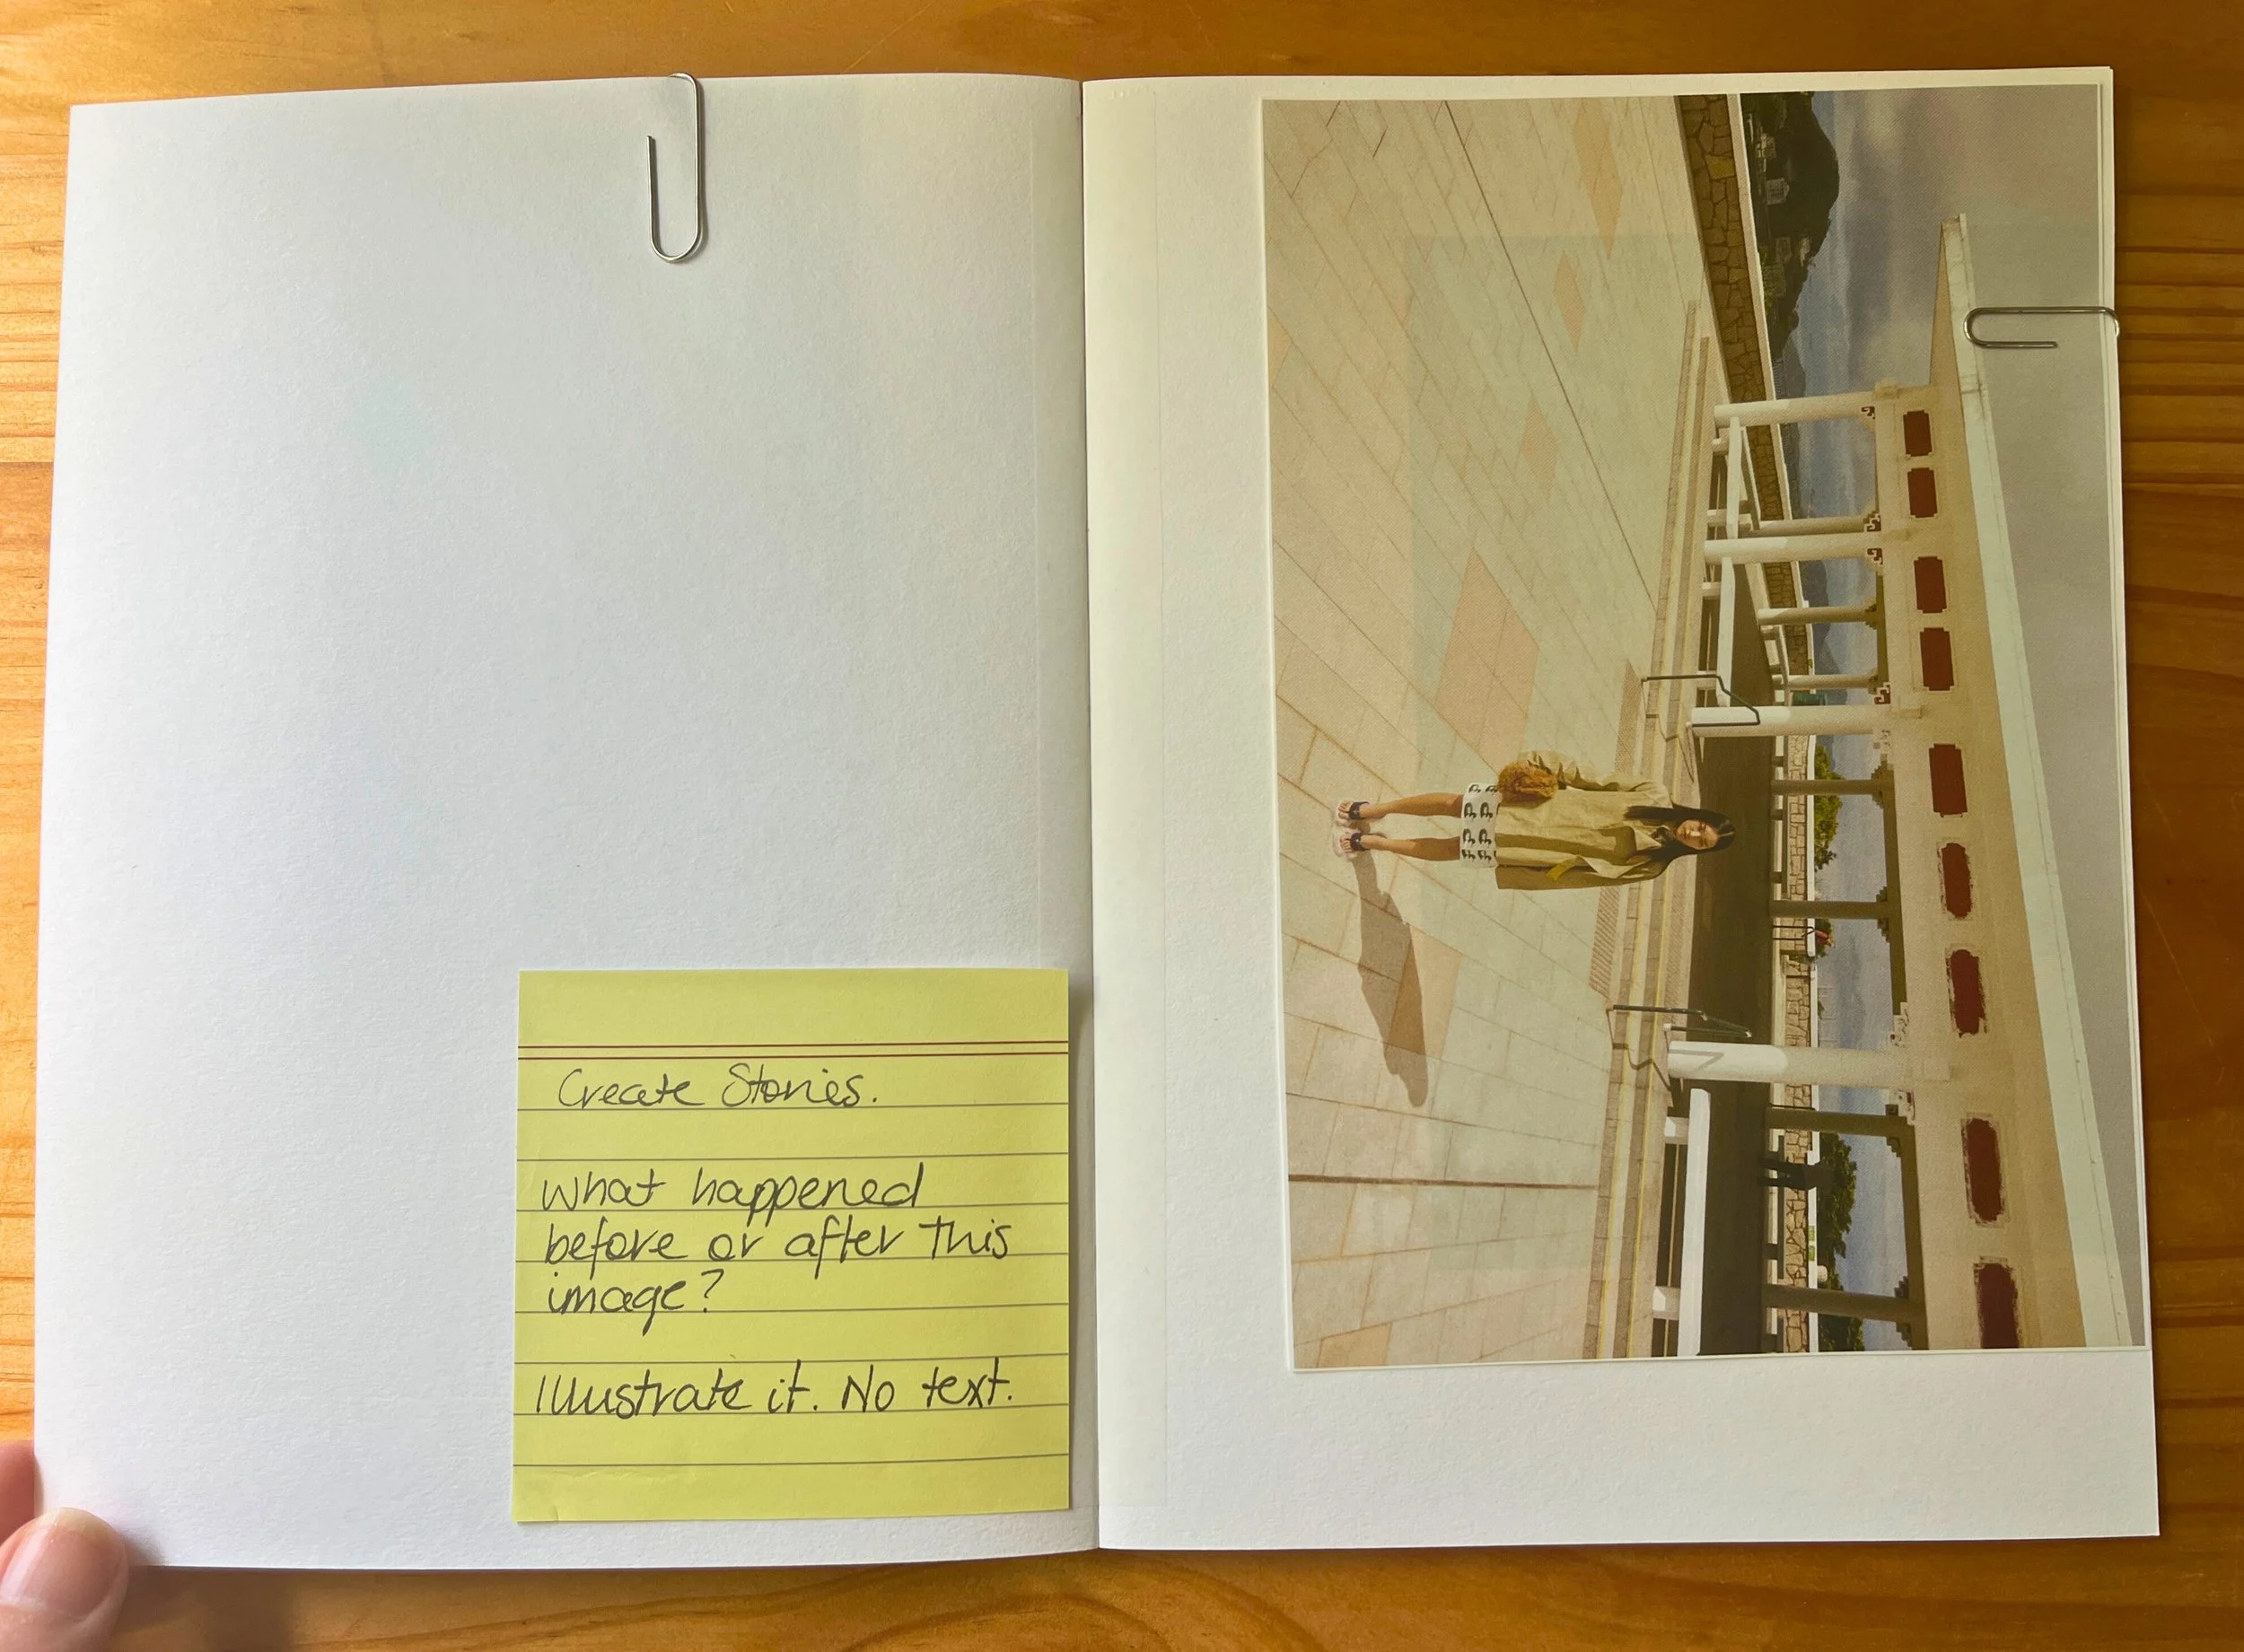 Create Stories.
What happened
before or after this
image?
Illustrate it. No text.